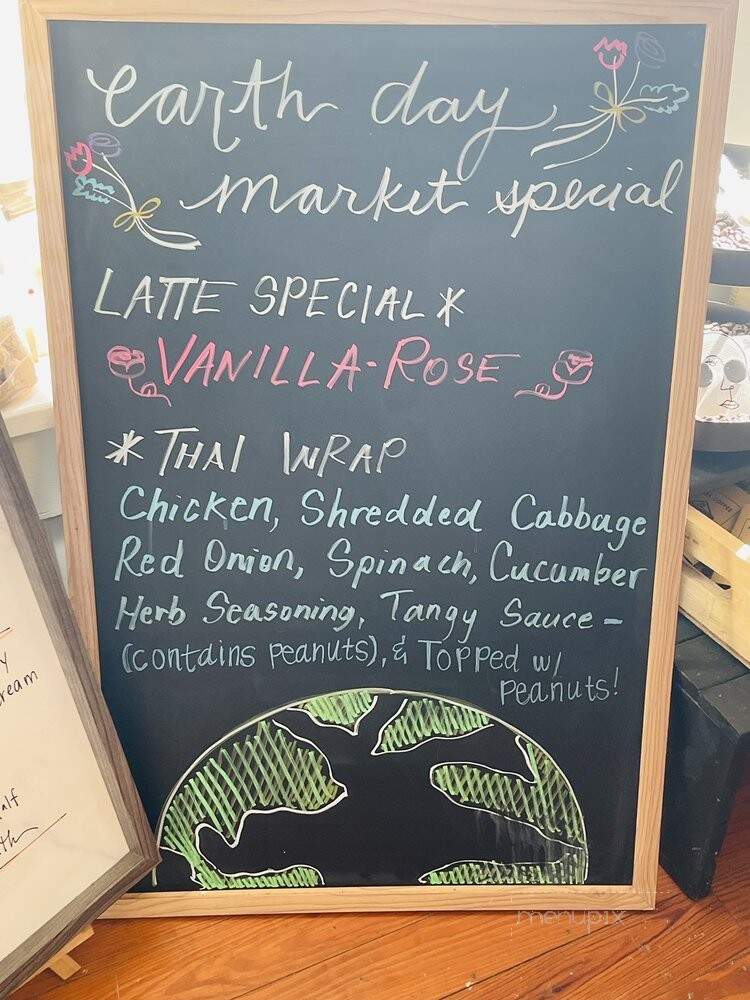 earth day
market special
LATTE SPECIAL*
VANILLA-ROSE
*THAI WRAP
Chicken, Shredded Cabbage
Red Onion, Spinach, Cucumber
Herb Seasoning, Tangy Sauce -
(contains peanuts), & TOPPED w/
peanuts!
menupix